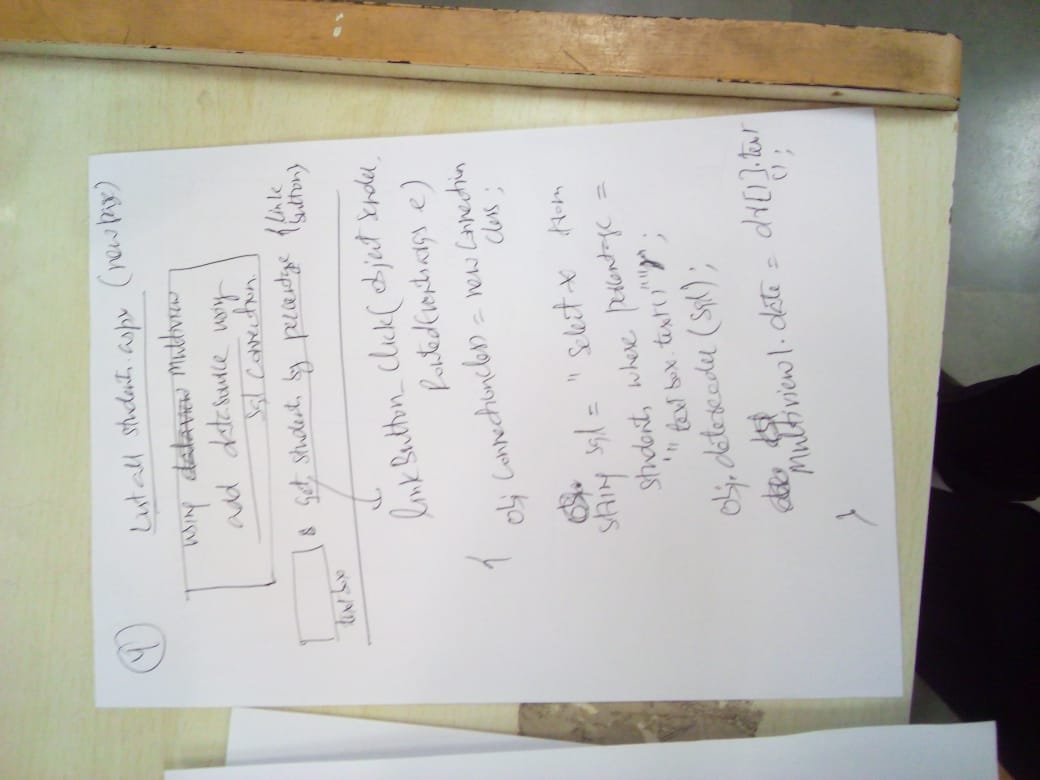 4
List all students.aspx (new page)
using Multiview
add datasource using
sql connection.
& get students by percentage {link
button}
textbox
linkButton_Click( object sender,
RoutedEventArgs e)
{
obj connectionclass = new connection
class ;
string sql = " select * from
students where percentage =
" text box.text() "" ;
obj. datareader (sql) ;
Multiview1. data = dr[1].text
() ;
}